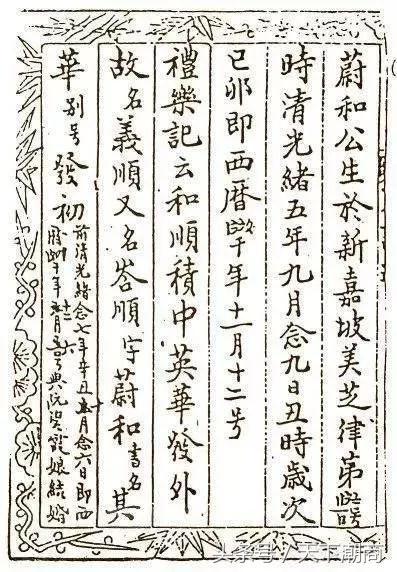 蔚和公生於新嘉坡美芝律第号
時清光緒五年九月念九日丑時歲次
己卯即西曆年十一月十二号
禮樂記云和順積中英華發外
故名義順又名峇順字蔚和書名其
華别号發初
前清光緒念七年辛丑月念六日即西
曆年月号與阮娘結婚
头条号 / 天下潮商